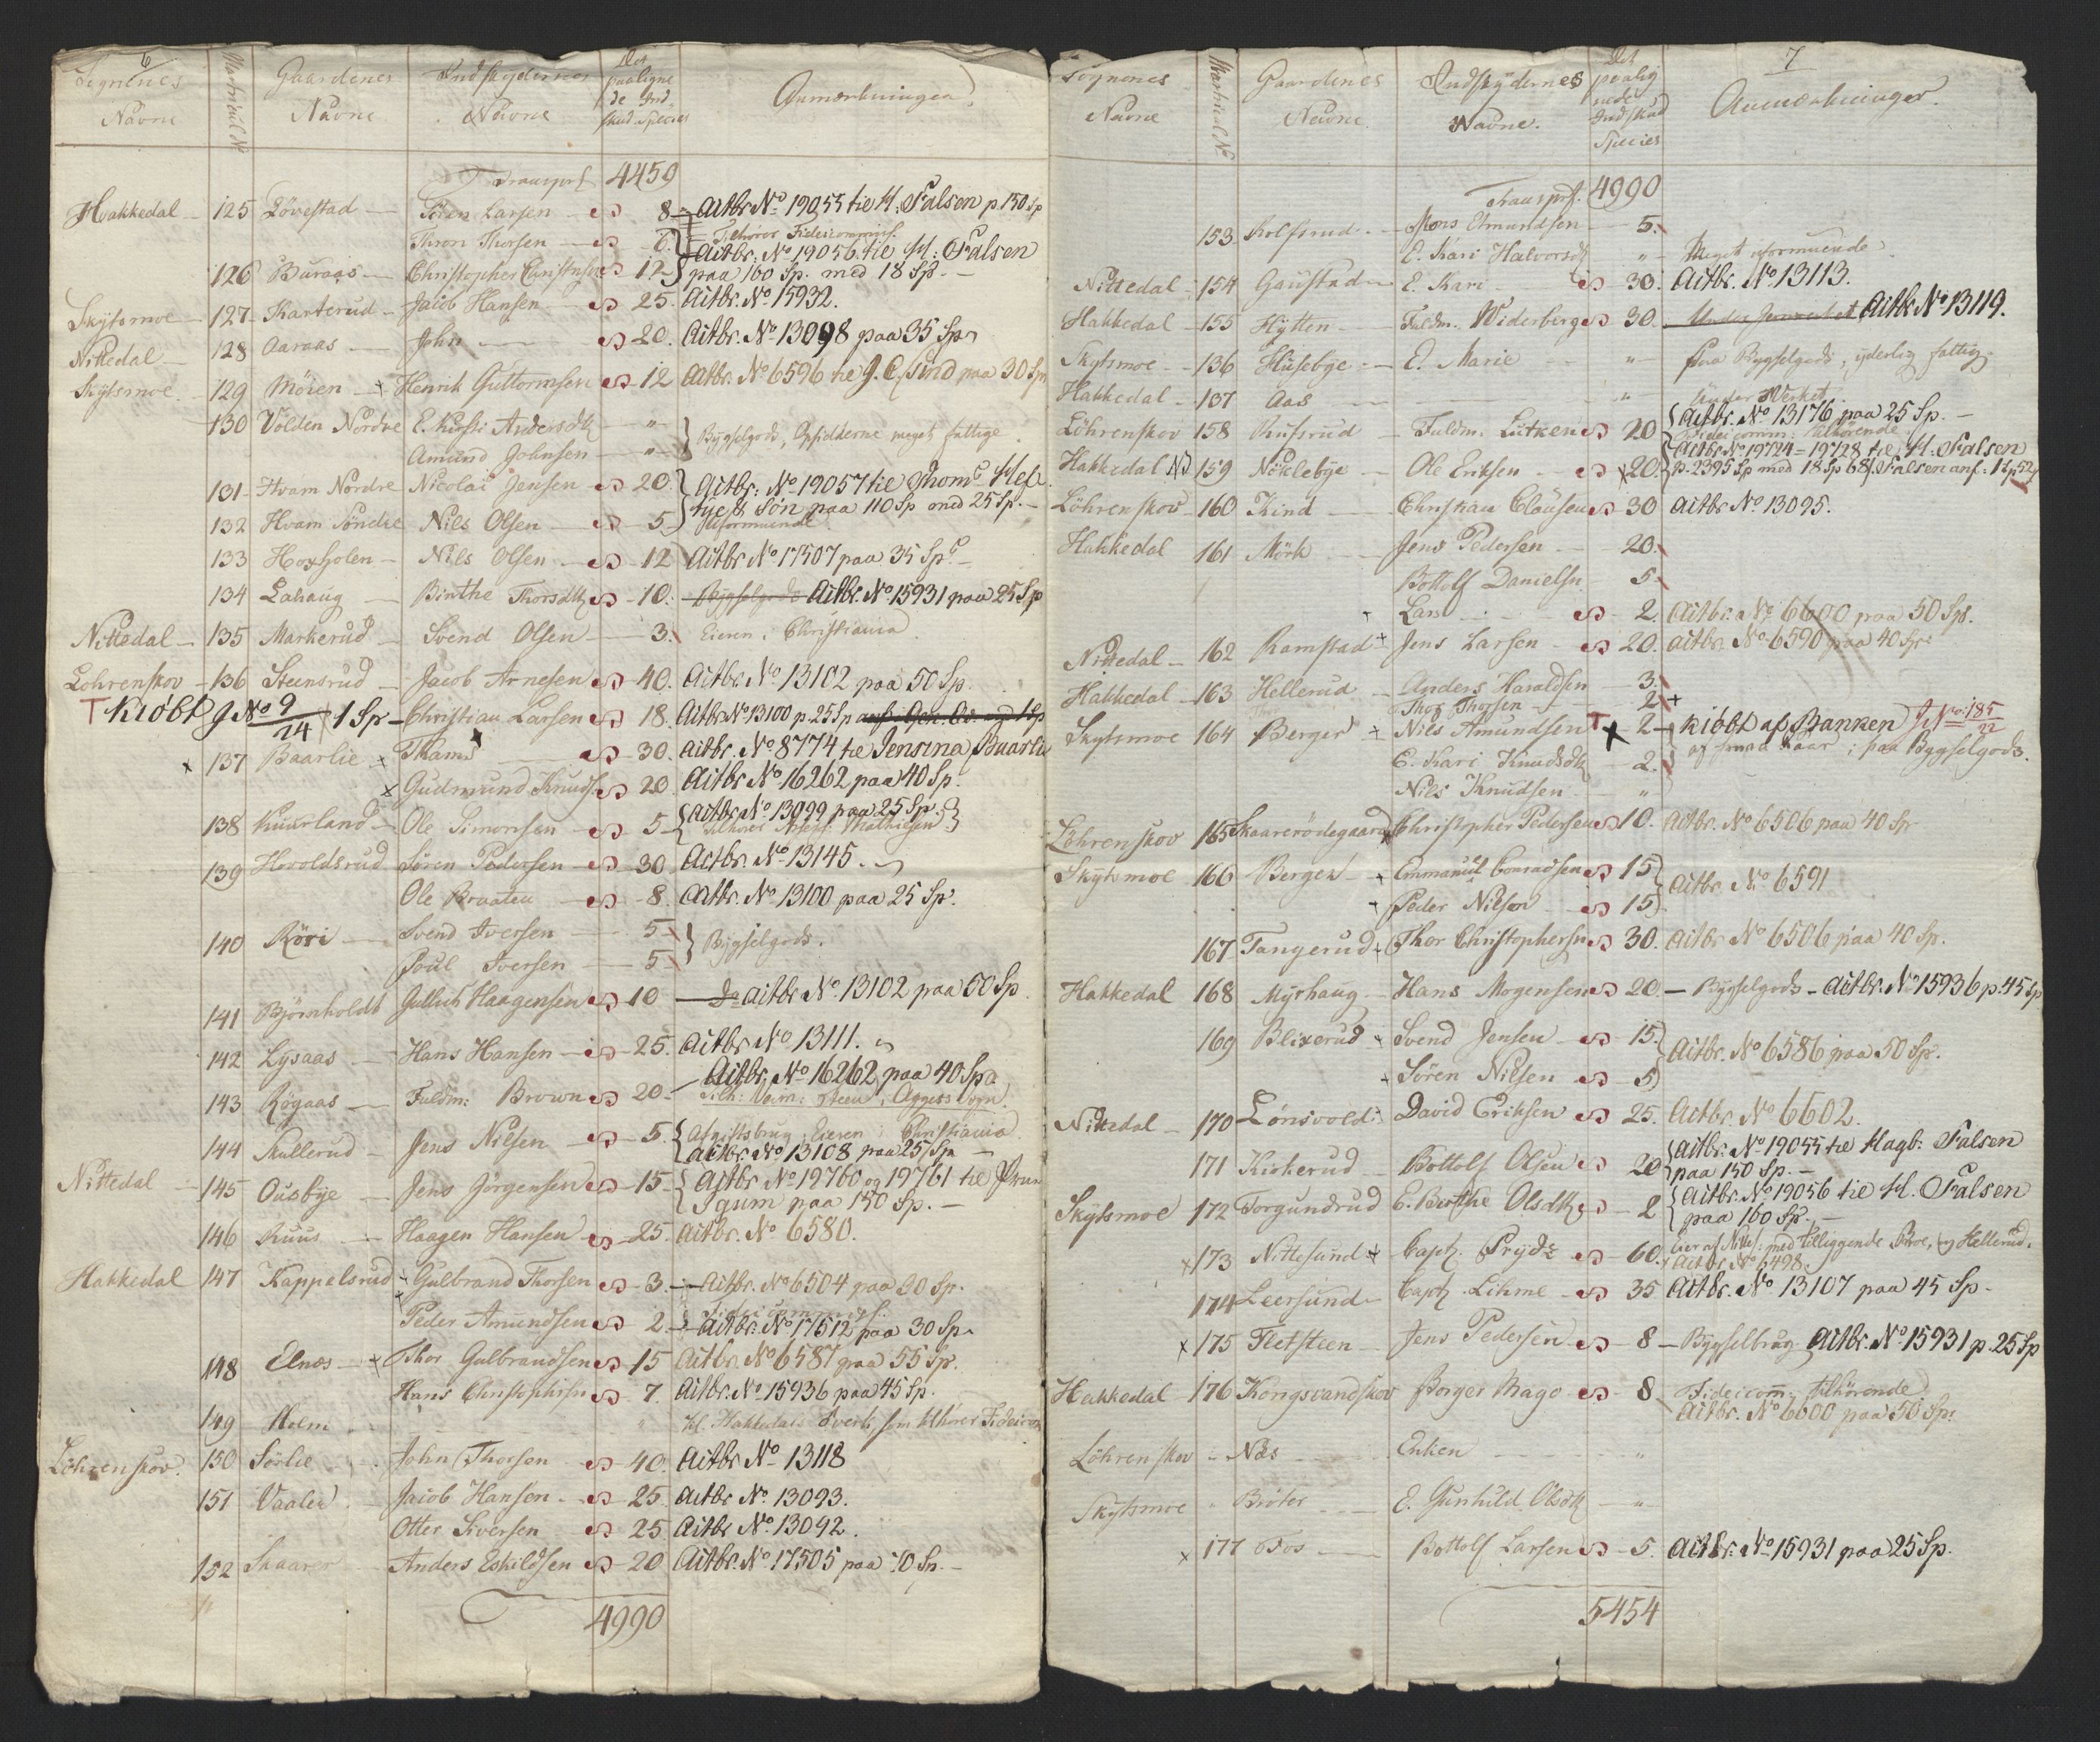 6
Sognenes Navne | Matricul No | Gaardenes Navne | Indskydernes Navne | Det paaligne de Ind skud Species | Anmærkninger
Transport 4459
Hakkedal 125 Lövestad Sören Larsen 8 Actbr. No 19055 til H. Falsen p. 150 Sp
Thron Thorsen 6 Tilhører Fideicommiss.
Actbr. No 19056 til H. Falsen
126 Buraas Christopher Christens. 12 paa 160 Sp. med 18 Sp.
Skytsmoe 127 Karterud Jacob Hansen 25. Actbr. No 15932.
Nittedal 128 Aaraas John 20. Actbr. No 13098 paa 35 Sp
Skytsmoe 129 Möien Henrik Guttormsen 12 Actbr. No 6596 til J. C. Sind paa 30 Sp
130 Volden Nordre E. Kirsti Andersdtr "
Bygselgods, Opsidderne meget fattige.
Amund Johnsen "
131 Hvam Nordre Nicolai Jensen 20 Actbr. No 19057 til Thoms Hef
tye & Sön paa 110 Sp med 25 Sp.
132 Hvam Söndre Nils Olsen 5 Uformuende
133 Hoxholen Nils Olsen 12 Actbr No 17507 paa 35 Sp
134 Lahaug Birthe Thorsdtr 10. Bygselgods Actbr. No 15931 paa 25 Sp
Nittedal 135 Markerud Svend Olsen 3. Eieren i Christiania
Löhrenskov 136 Steensrud Jacob Arnesen 40. Actbr No 13102 paa 50 Sp.
T Kiöbt J No 9/14 1 Sp Christian Larsen 18. Actbr No 13100 p. 25 Sp
137 Baarlie Thams 30. Actbr. No 8774 til Jensina Baarlie
Gudmund Knuds. 20 Actbr No 16262 paa 40 Sp.
Actbr No 13099 paa 25 Sp.
138 Kuurland Ole Simonsen 5 Tilhører Mathiesen
139 Horoldsrud Sören Pedersen 30 Actbr. No 13145.
Ole Braaten 8. Actbr. No 13100 paa 25 Sp.
140 Röri Svend Iversen 5
Bygselgods.
Poul Iversen 5
141 Björnholdt Gulbr. Haagensen 10 do Actbr No 13102 paa 50 Sp
142 Lysaas Hans Hansen 25. Actbr No 13111.
Actbr. No 16262 paa 40 Sp
143 Rögaas Fuldm: Brown 20. Aggers Sogn.
144 Skullerud Jens Nilsen 5. Afgiftsbrug, Eieren i Christiania
Actbr No 13108 paa 25 Sp
Nittedal 145 Ousbye Jens Jörgensen 15 Actbr No 19760 og 19761 til
Igum paa 150 Sp.
146 Ruus Haagen Hansen 25. Actbr. No 6580.
Hakkedal 147 Kappelsrud Gulbrand Thorsen 3. Actbr. No 6504 paa 30 Sp.
Fideicommiss.
Peder Amundsen 2 Actbr. No 17512 paa 30 Sp
148 Elnæs Thor Gulbrandsen 15 Actbr No 6587 paa 55 Sp.
Hans Christophersen 7. Actbr. No 15936 paa 45 Sp.
149 Holm " til Hakkedals Verk, som tilhører Fideicom
Löhrenskov. 150 Sörlie John Thorsen 40. Actbr No 13118
151 Vaaler Jacob Hansen 25 Actbr No 13093.
Otter Siversen 25 Actbr No 13092.
152 Skaarer Anders Eskildsen 20 Actbr. No 17505 paa 70 Sp.
4990
7
Sognenes Navne | Matricul No | Gaardenes Navne | Indskydernes Navne. | Det paalig nede Indskud Species | Anmærkninger.
Transport. 4990
153 Rolfsrud Mons Amundsen 5.
E. Kari Halvorsdtr " Meget uformuende
Nittedal 154 Gaustad E. Kari 30. Actbr. No 13113.
Hakkedal 155 Hytten Fuldm. Widerberg 30. Under Jernverket Actbr No 13119.
Skytsmoe 156 Husebye E. Marie " paa Bygselgods, yderlig fattig
Hakkedal 157 Aas " Under Verket
Actbr. No 13176 paa 25 Sp.
Löhrenskov 158 Russrud Fuldm. Lütken 20 Fideicomm. tilhörende
Actbr No 19724 - 19728 til H. Falsen
Hakkedal 159 Nöklebye Ole Eriksen 20. p. 2395 Sp med 18 Sp 68 s. Falsen anf. 1 Sp 52
Löhrenskov 160 Kind Christian Clausen 30 Actbr No 13095.
Hakkedal 161 Mörk Jens Pedersen 20.
Bottolf Danielsn 5
Lars 2. Actbr. No 6600 paa 50 Sp.
Nittedal 162 Ramstad Jens Larsen 20. Actbr. No 6590 paa 40 Sp
Hakkedal 163 Hellerud Anders Haraldsen 3.
Thor Thorsen 2
Skytsmoe 164 Berger Nils Amundsen T 2 Kiöbt af Banken J No 185/22
af smaa Kaar; paa Bygselgods.
E. Kari Knudsdtr 2.
Nils Knudsen "
Löhrenskov 165 Skaarerödegaard Christopher Pedersen 10. Actbr. No 6506 paa 40 Sp
Skytsmoe 166 Berger Emmanuel Conradsen 15
Actbr. No 6591
Peder Nilsen 15
167 Tangerud Thor Christophersn 30. Actbr No 6506 paa 40 Sp.
Hakkedal 168 Myrhaug Hans Mogensen 20. Bygselgods Actbr. No 15936 p. 45 Sp
169 Blixerud Svend Jensen 15.
Actbr. No 6586 paa 50 Sp.
Sören Nilsen 5
Nittedal 170 Lönsvold David Eriksen 25. Actbr. No 6602.
Actbr. No 19055 til Hagb: Falsen
171 Kirkerud Bottolf Olsen 20 paa 150 Sp.
Actbr. No 19056 til H. Falsen
Skytsmoe 172 Torgundrud E. Birthe Olsdtr 2 paa 160 Sp.
173 Nittesund Capt. Prydz 60. Eier af Nittes: med tilliggende Broe, og Hellerud.
Actbr. No 6498.
174 Leersund Capt. Lihme 35 Actbr. No 13107 paa 45 Sp.
175 Fletsteen Jens Pedersen 8 Bygselbrug Actbr. No 15931 p. 25 Sp
Hakkedal 176 Kongsvandskov Borger Mago 8. Fideicom: tilhörende
Actbr. No 6600 paa 50 Sp.
Löhrenskov Næs Enken "
Skytsmoe Bröter E. Gunhild Olsdtr "
177 Aos Bottolf Larsen 5. Actbr. No 15931 paa 25 Sp.
5454